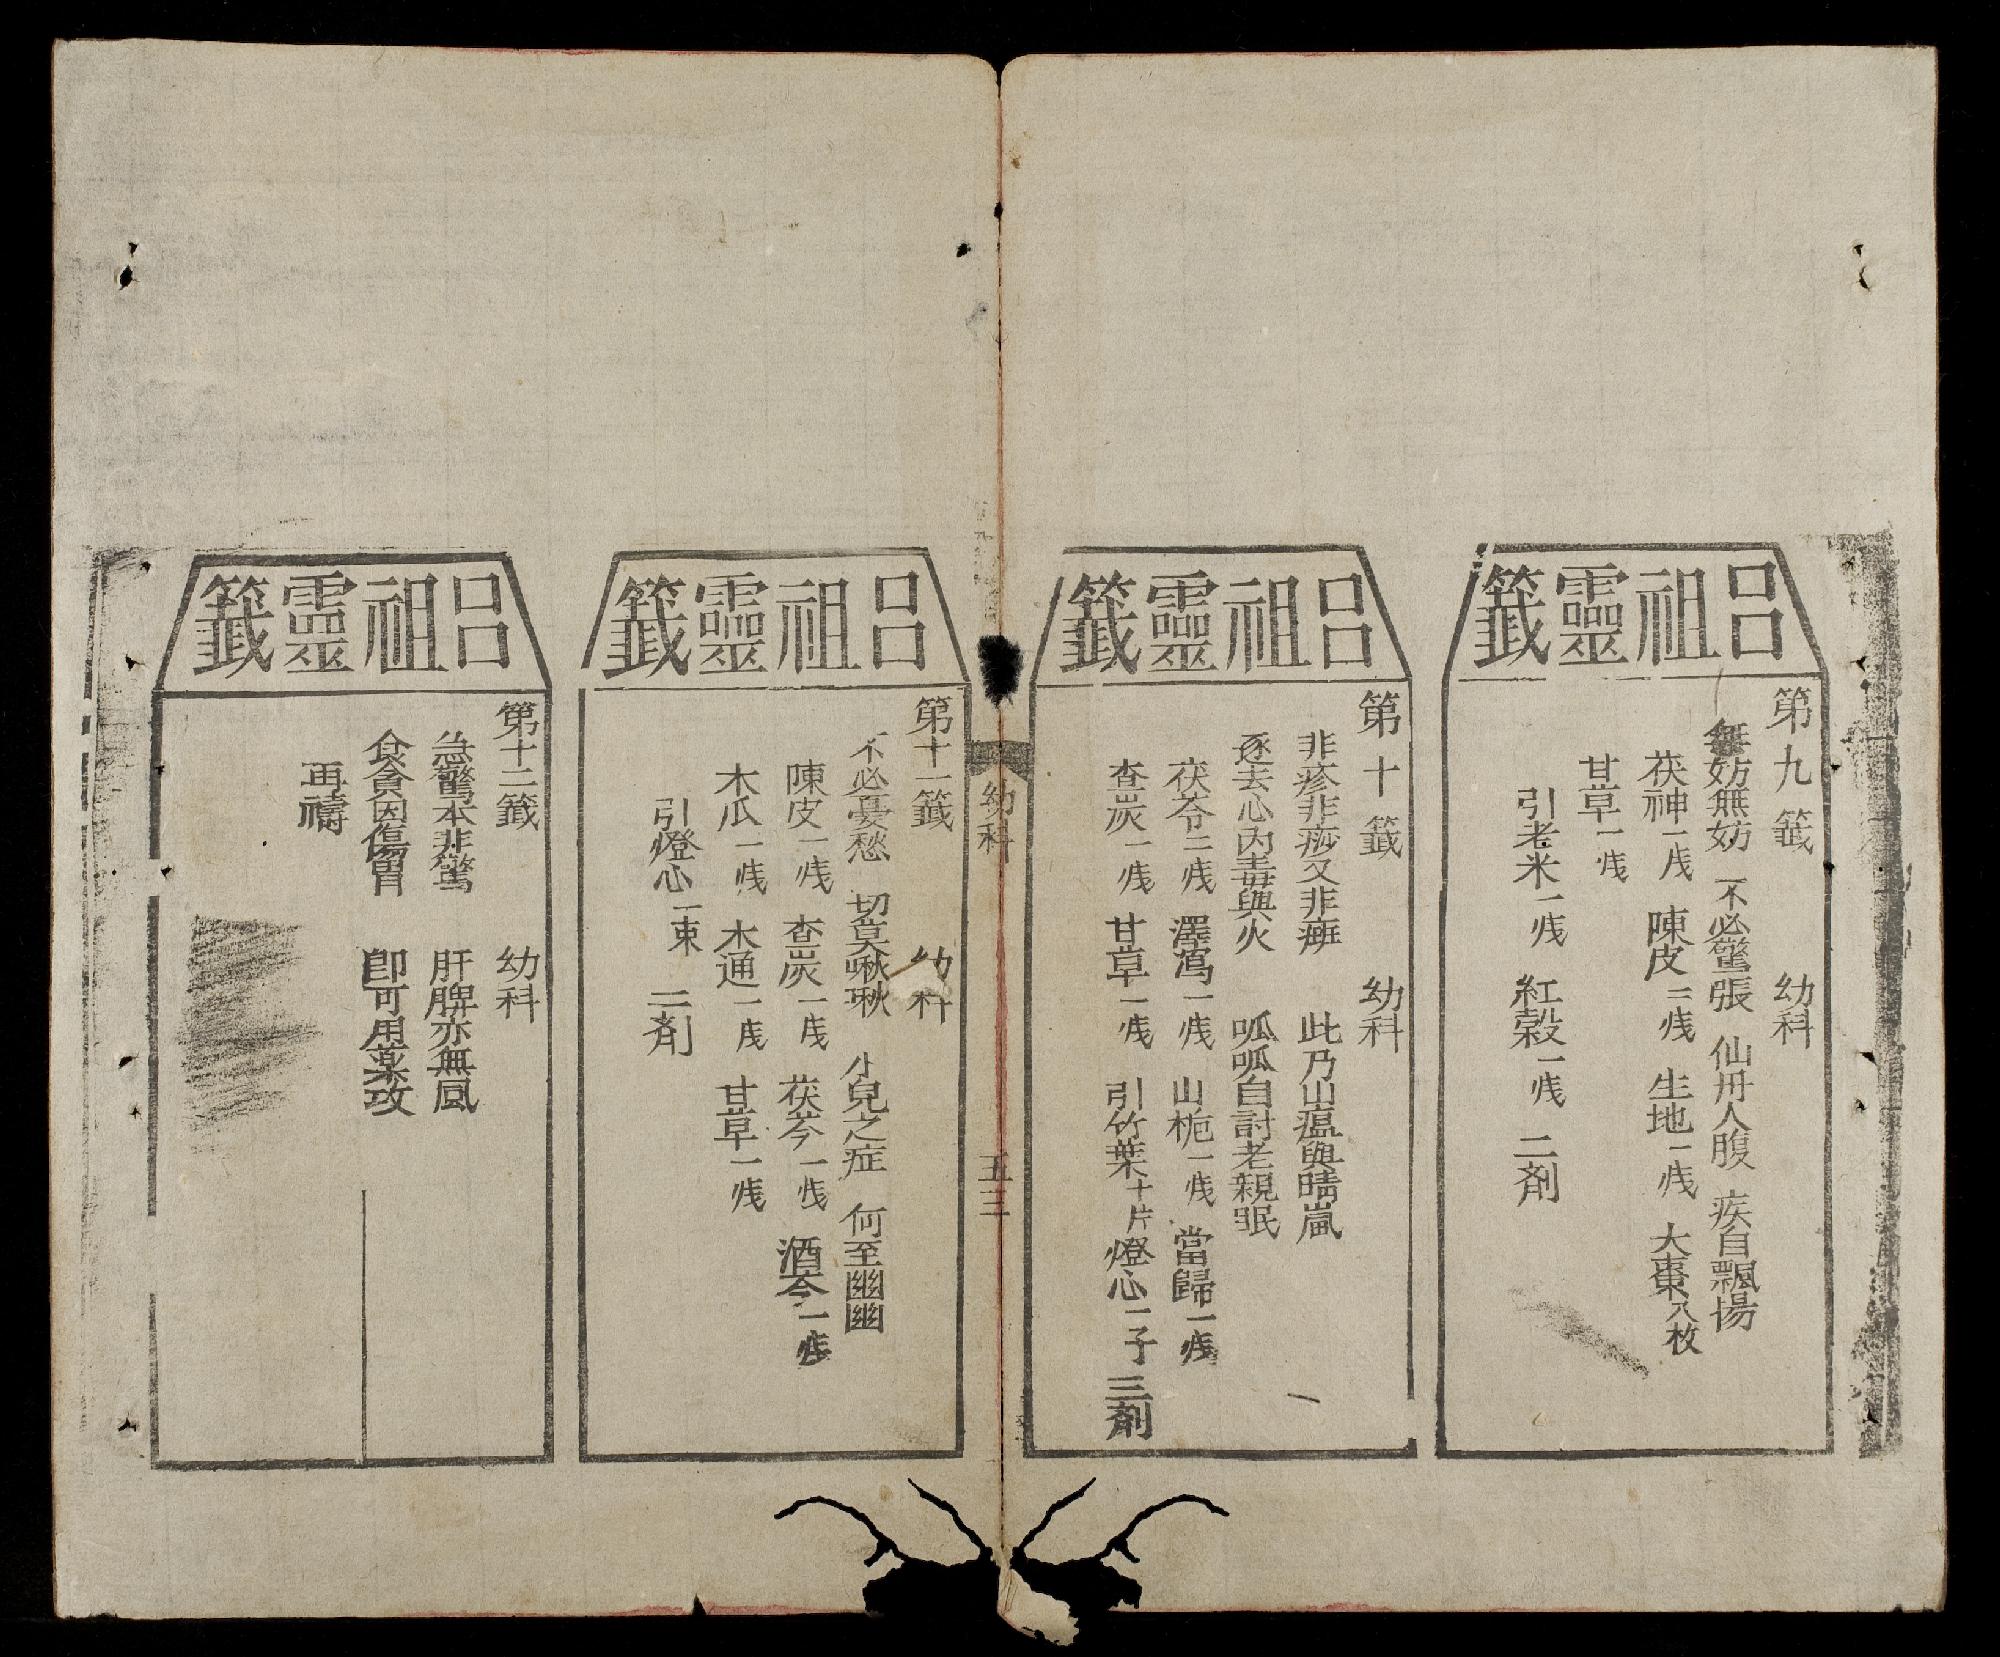 呂祖靈籤
第九籤　幼科
無妨無妨　不必驚張　仙丹入腹　疾自飄揚
茯神一戋　陳皮二戋　生地一戋　大棗八枚
甘草一戋
引老米一戋　紅穀一戋　二剤
呂祖靈籤
第十籤　幼科
非疹非痧又非癍　此乃山瘟與晴嵐
逐去心內毒與火　呱呱自討老親眠
茯苓二戋　澤瀉一戋　山梔一戋　當歸一戋
查炭一戋　甘草一戋　引竹葉十片燈心一子　三剤
幼科
五三
呂祖靈籤
第十一籤　幼科
不必憂愁　切莫啾啾　小兒之症　何至幽幽
陳皮一戋　查炭一戋　茯苓一戋　酒芩一戋
木瓜一戋　木通一戋　甘草一戋
引燈心一束　二剤
呂祖靈籤
第十二籤　幼科
急驚本非驚　肝脾亦無風
食貪因傷胃　即可用藥攻
再禱